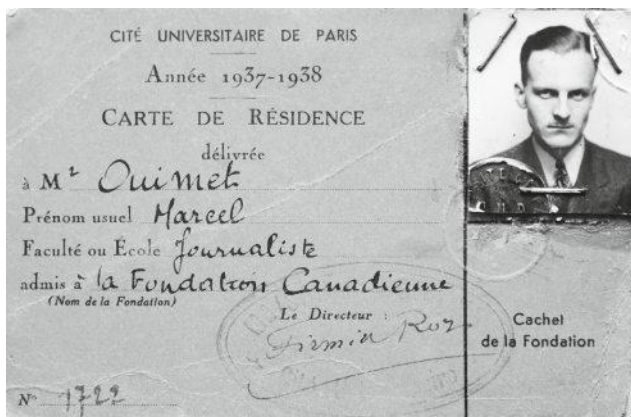 CITÉ UNIVERSITAIRE DE PARIS
Année 1937-1938
CARTE DE RÉSIDENCE
délivrée
à Mr Ouimet
Prénom usuel Marcel
Faculté ou École Journaliste
admis à la Fondation Canadienne
(Nom de la Fondation)
Le Directeur :
Firmin Roz
Cachet
de la Fondation
No 1722